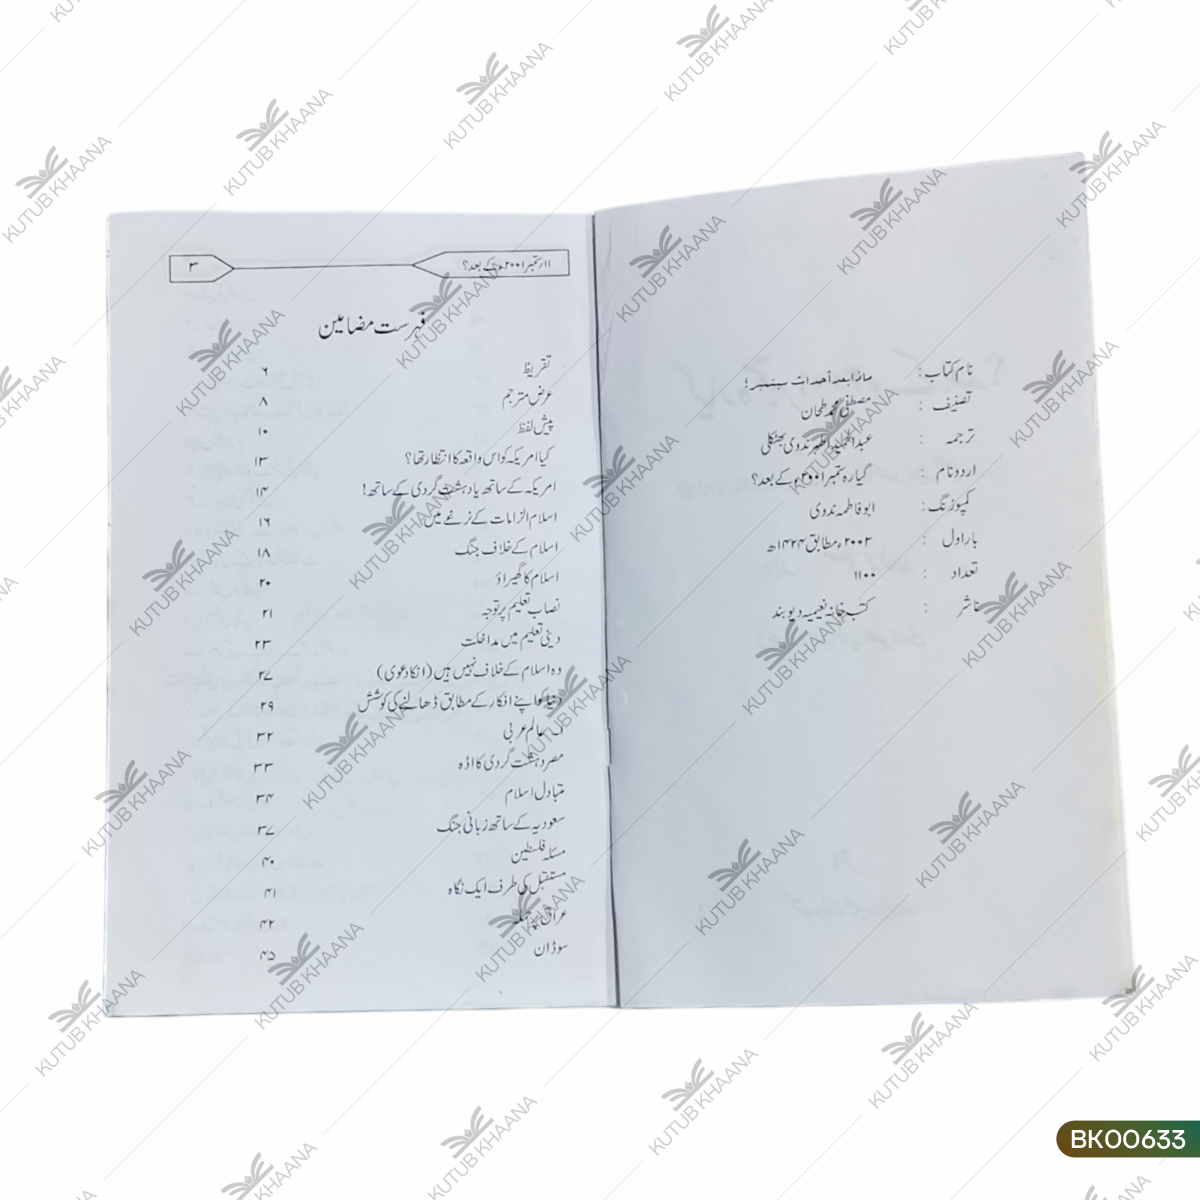 نام کتاب : ماذا بعد أحداث سبتمبر؟
تصنیف : مصطفی محمد طحان
ترجمہ : عبدالحمید اطہر ندوی بھٹکلی
اردو نام : گیارہ ستمبر ۲۰۰۱ء کے بعد؟
کمپوزنگ : ابو فاطمہ ندوی
بار اول : ۲۰۰۳ء مطابق ۱۴۲۴ھ
تعداد : ۱۱۰۰
ناشر : کتب خانہ نعیمیہ دیوبند
۱۱ ستمبر ۲۰۰۱ء کے بعد؟ ۳
فہرست مضامین
تقریظ ۶
عرض مترجم ۸
پیش لفظ ۱۰
کیا امریکہ کو اس واقعہ کا انتظار تھا؟ ۱۳
امریکہ کے ساتھ یا دہشت گردی کے ساتھ! ۱۴
اسلام الزامات کے نرغے میں؟ ۱۶
اسلام کے خلاف جنگ ۱۸
اسلام کا گھیراؤ ۲۰
نصاب تعلیم پر توجہ ۲۱
دینی تعلیم میں مداخلت ۲۳
وہ اسلام کے خلاف نہیں ہیں (انکا دعوی) ۲۷
دنیا کو اپنے افکار کے مطابق ڈھالنے کی کوشش ۲۹
عالم عربی ۳۲
مصر دہشت گردی کا اڈہ ۳۳
متبادل اسلام ۳۴
سعودیہ کے ساتھ زبانی جنگ ۳۷
مسئلہ فلسطین ۴۰
مستقبل کی طرف ایک نگاہ ۴۱
عراق پر حملہ ۴۲
سوڈان ۴۵
KUTUB KHAANA
BK00633